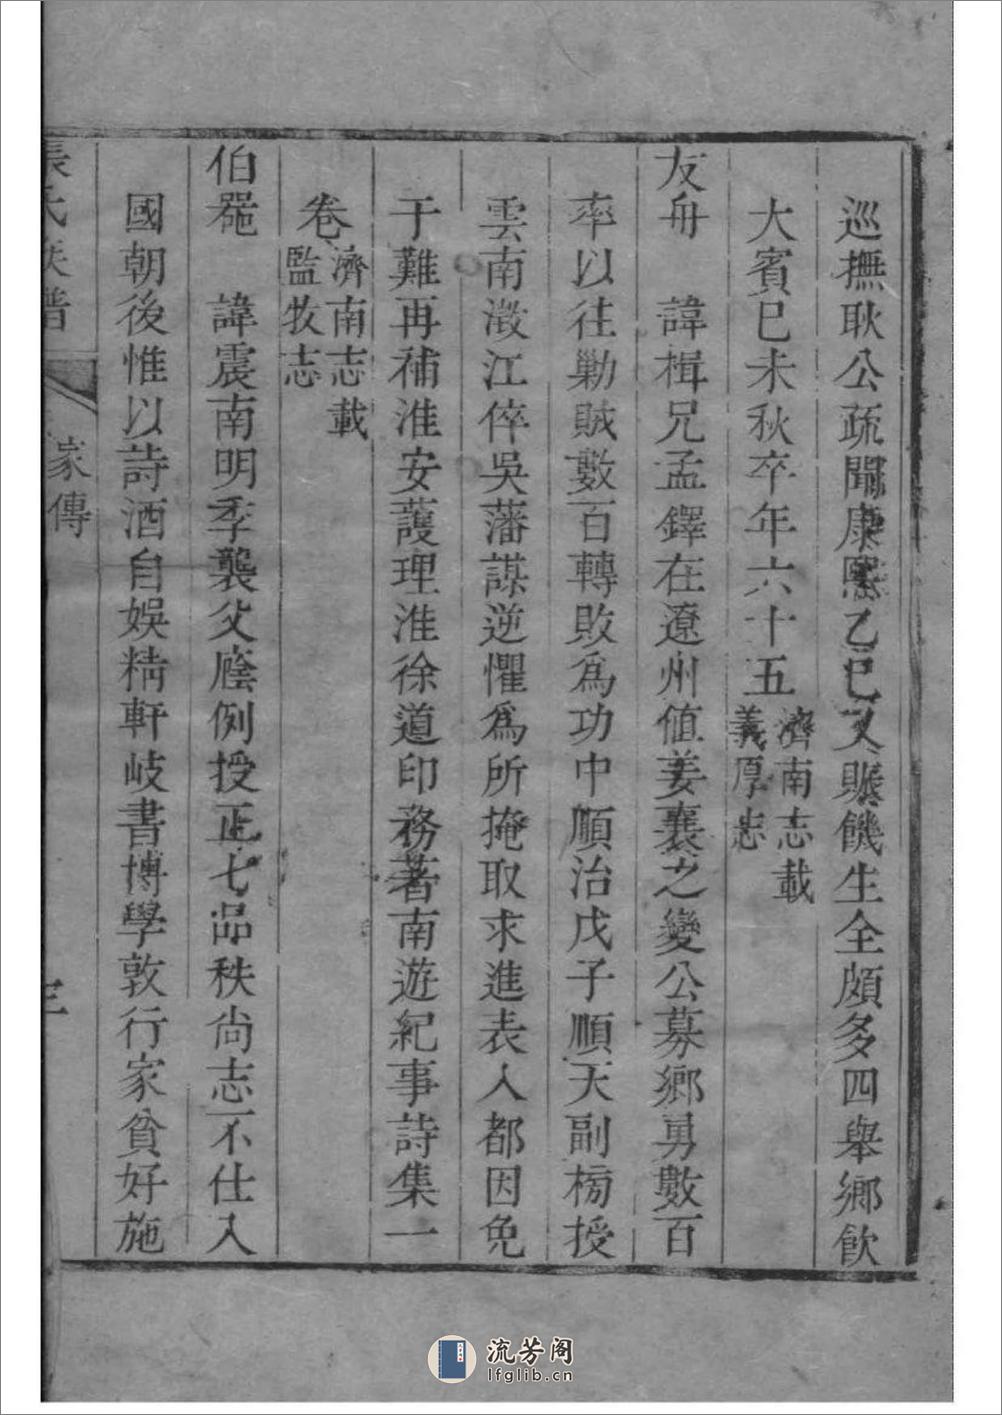 巡撫耿公疏聞康熙乙巳又賑饑生全頗多四舉鄉飲
大賓巳未秋卒年六十五濟南志載義厚志
友舟　諱楫兄孟鐸在遼州值姜襄之變公募鄉勇數百
率以往勦賊數百轉敗為功中順治戊子順天副榜授
雲南澂江倅吳藩謀逆懼為所掩取求進表入都因免
于難再補淮安護理淮徐道印務著南遊紀事詩集一
卷濟南志載監牧志
伯罷　諱震南明季襲父廕例授正七品秩尚志不仕入
國朝後惟以詩酒自娛精軒岐書博學敦行家貧好施
張氏族譜
家傳
流芳阁
lfglib.cn